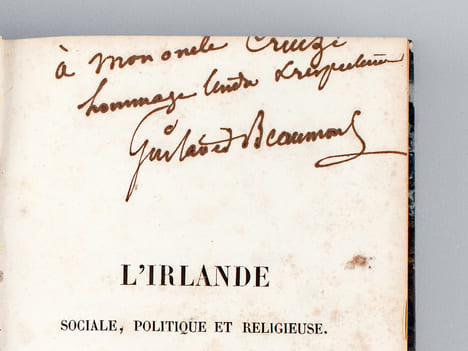 à Mon oncle Cruzé
hommage tendre & respectueux
Gustave de Beaumont
L'IRLANDE
SOCIALE, POLITIQUE ET RELIGIEUSE.